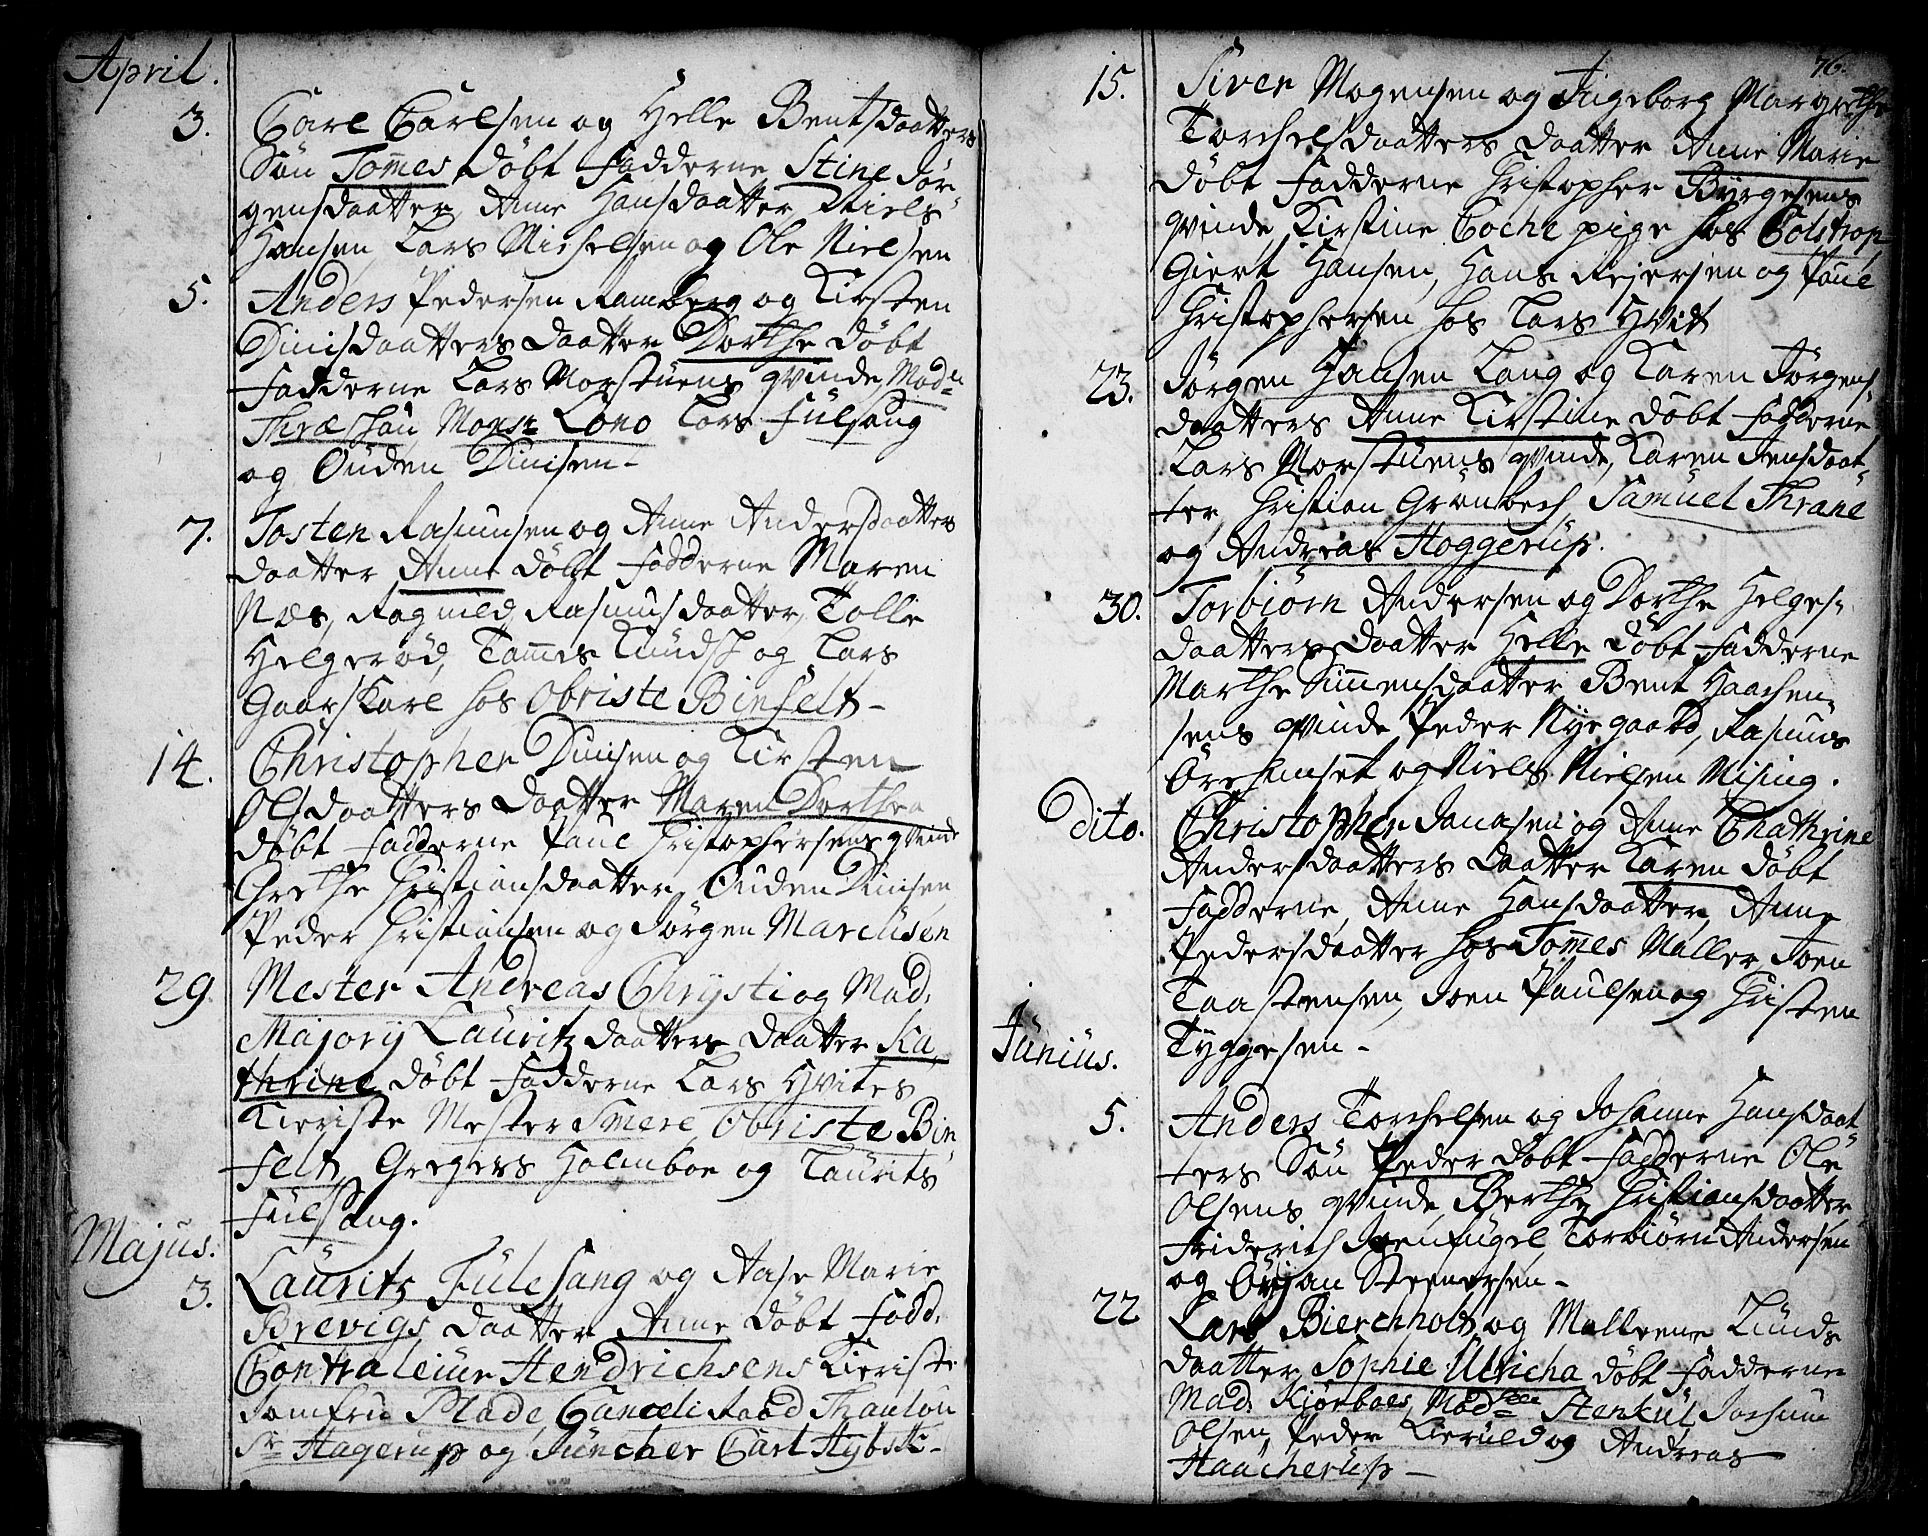 April.
3. Carl Carlsen og Helle Bentsdaatters
Søn Tom̄es døbt Fadderne Stine Jør
gensdaatter, Anne Hansdaatter, Niels
Hansen, Lars Michelsen og Ole Nielsen
5. Anders Pedersen Ramberg og Kirsten
Dinisdaatters daatter Dorthe døbt
Fadderne Lars Morstuens qvinde, Mad.
Monsr Lono Lars Fülsang
og Ouden Dinisen.
7. Tosten Rasmusen og Anne Andersdaatters
daatter Anne døbt Fadderne Maren
Næs, Ragnild Rasmusdaatter, Tolle
Helgerød, Tam̄es Knuds. og Lars
Gaarskarl hos Obriste Binfelt-
14. Christopher Dinisen og Kirsten
Olsdaatters daatter Maren Dorthea
døbt Fadderne Paul Christophersens qvinde
Grethe Christiansdaatter, Ouden Dinisen
Peder Christiansen og Jørgen Marcusen
29. Mester Andreas Chrysti og Mad.
Majorij Lauritzdaatters daatter Ka
thrine døbt Fadderne Lars Hvites
Kieriste Mester Smere, Obriste Bin
Felt, Gregers Holmboe og Laurits
Fülsang.
Majus.
3. Lauritz Fülesang og Aase Marie
Brevigs daatter Anne døbt Fadd.
Contraleiur Hendrichsens Kieriste
Jomfru Plade, Cancelli Raad Thaulou
Sr Hagerup og Juncher Carl Hybsk-
76.
15. Siver Mogensen og Ingeborg Margrethe
Torchelsdaatters daatter Anne Marie
døbt Fadderne Christopher Byrgesens
qvinde, Kirstine Coche pige hos Colstrop
Giert Hansen, Hans Rejersen og Paul
Christophersen hos Lars Hvid
23. Jørgen Hansen Lang og Karen Jørgens
daatters Anne Kirstine døbt Fadderne
Lars Morstuens qvinde, Karen Jensdaat-
ter, Christian Grønbech, Samuel Thrane
og Andreas Hoggerup.
30. Torbiørn Andersen og Dorthe Helges-
daatters daatter Helle døbt Fadderne
Marthe Simensdaatter, Bent Haachen-
sens qvinde, Peder Nyegaard, Rasmus
og Niels Nielsen Mising.
Dito. Christopher Jonasen og Anne Chathrine
Andersdaatters daatter Karen døbt
Fadderne, Anne Hansdaatter, Anne
Pedersdaatter hos Tom̄es Maller Joen
Taastensen, Joen Paulsen og Christen
Tyggesen-
Junius.
5. Anders Torchelsen og Johanne Hansdaat-
ters Søn Peder døbt Fadderne Ole
Olsens qvinde, Berthe Christiansdaatter
Friderich Torbiørn Andersen
og Ørjan Steenersen-
22 Lars Bierchholt og Malleene Lunds
daatter Sophie Ulricha døbt Fadderne
Mad. Kiørboes, Madselle Stenkul, Jochum
Olsen, Peder Kieruld og Andreas
Haacherup-